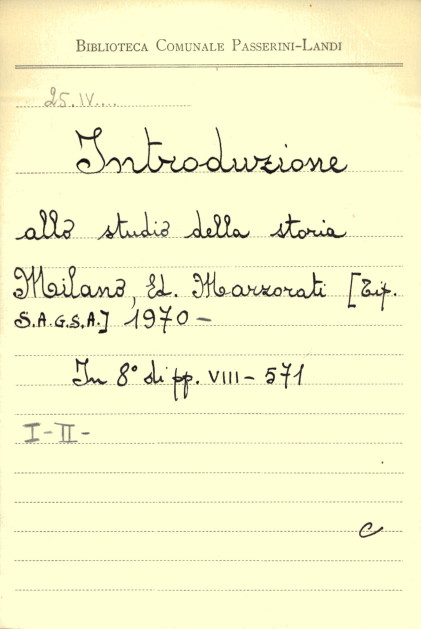 BIBLIOTECA COMUNALE PASSERINI-LANDI
25.IV....
Introduzione
allo studio della storia
Milano, Ed. Marzorati [Tip.
S.A.G.S.A.] 1970 -
In 8° di pp. VIII - 571
I - II -
C